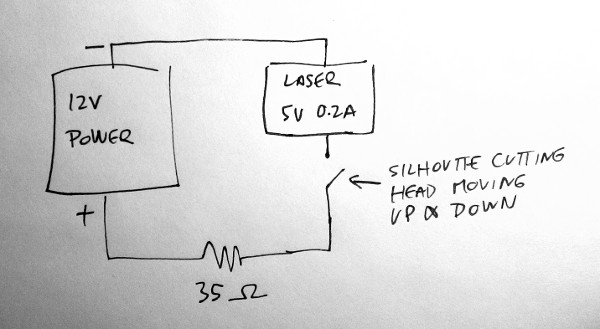 –
12V
POWER
+
LASER
5V 0.2A
SILHOUTTE CUTTING
HEAD MOVING
UP & DOWN
35 Ω